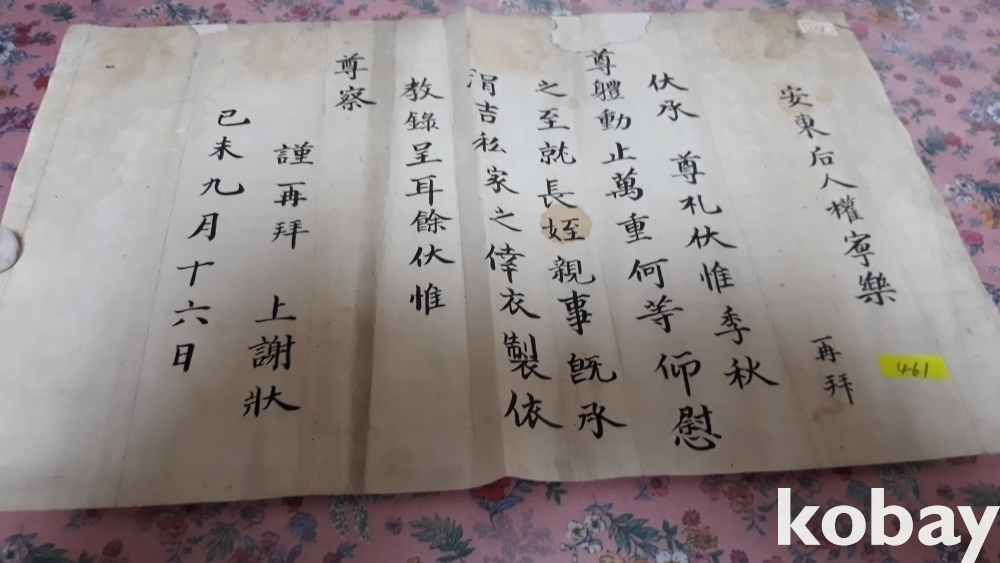 安東后人權寧樂 再拜
伏承 尊礼伏惟季秋
尊體動止萬重何等仰慰
之至就長姪親事旣承
涓吉私家之倖衣製依
教錄呈耳餘伏惟
尊察
謹再拜 上謝狀
己未九月十六日
461
kobay